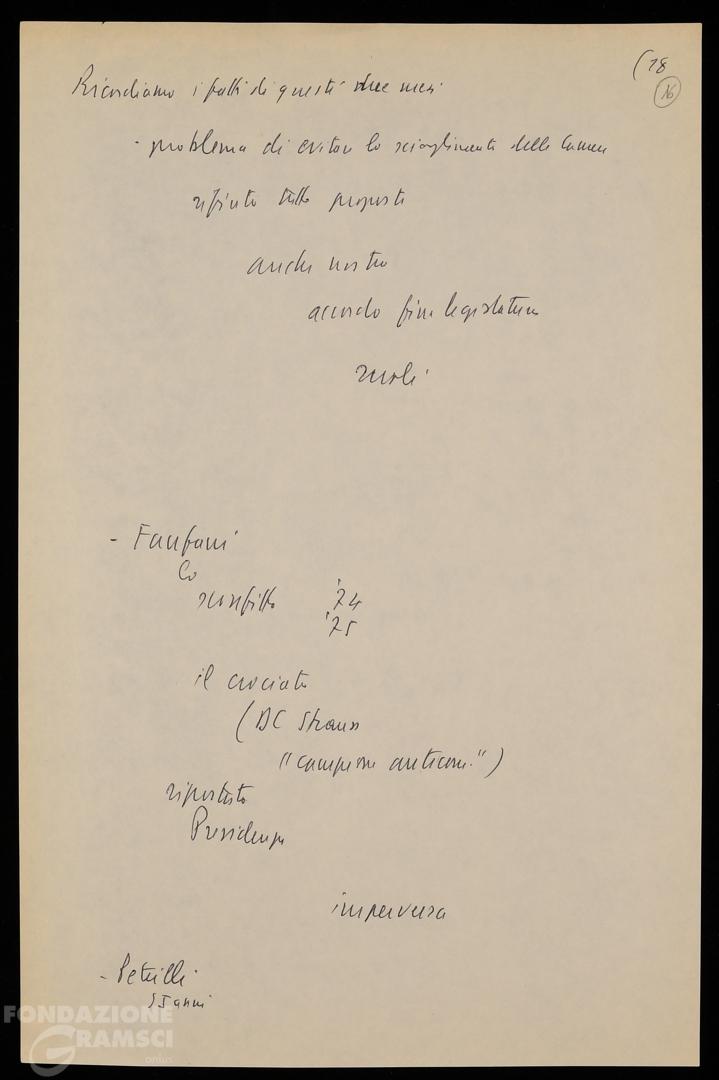 (18
16
Ricordiamo i fatti di questi due mesi
- problema di evitare lo scioglimento delle Camere
rifiuto tutte proposte
anche nostra
accordo fine legislatura
- Fanfani
Lo
sconfitto '74
'75
il crociato
(DC Strauss
"campione anticom.")
riportato
Presidenza
imperversa
- Petrilli
15 anni
FONDAZIONE
GRAMSCI
onlus